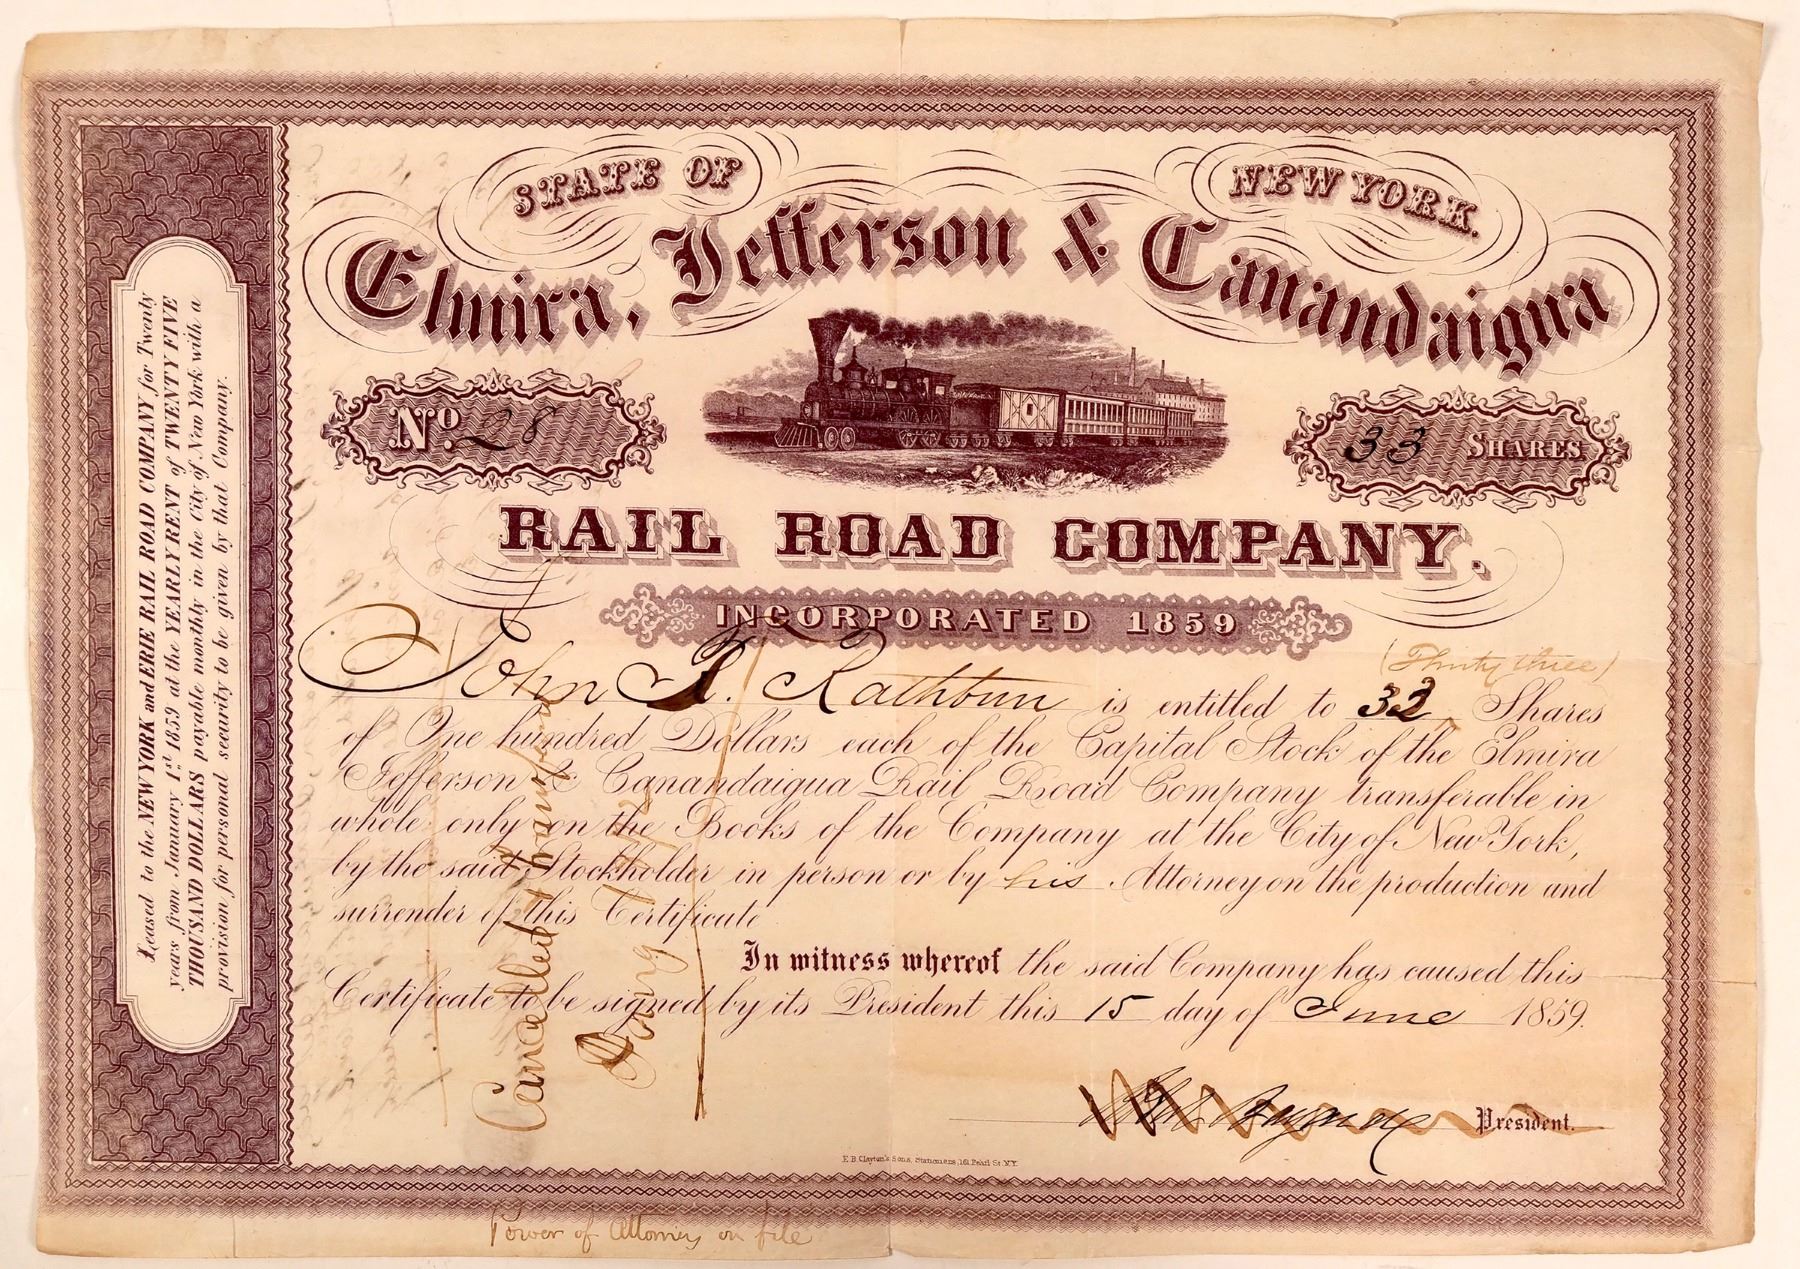 STATE OF NEW YORK.
Elmira, Jefferson & Canandaigua
No. 28
33 SHARES
RAIL ROAD COMPANY.
INCORPORATED 1859
(Thirty three)
John F. Rathbun is entitled to 33 Shares
of One hundred Dollars each of the Capital Stock of the Elmira
Jefferson & Canandaigua Rail Road Company transferable in
whole only on the Books of the Company at the City of New York,
by the said Stockholder in person or by his Attorney on the production and
surrender of this Certificate
In witness whereof the said Company has caused this
Certificate to be signed by its President this 15 day of June 1859.
President.
E.B. Clayton's Sons, Stationers, 161 Pearl St. N.Y.
Power of Attorney on file
Leased to the NEW YORK and ERIE RAIL ROAD COMPANY for Twenty
years from January 1st 1859 at the YEARLY RENT of TWENTY FIVE
THOUSAND DOLLARS payable monthly in the City of New York with a
provision for personal security to be given by that Company.
Cancelled